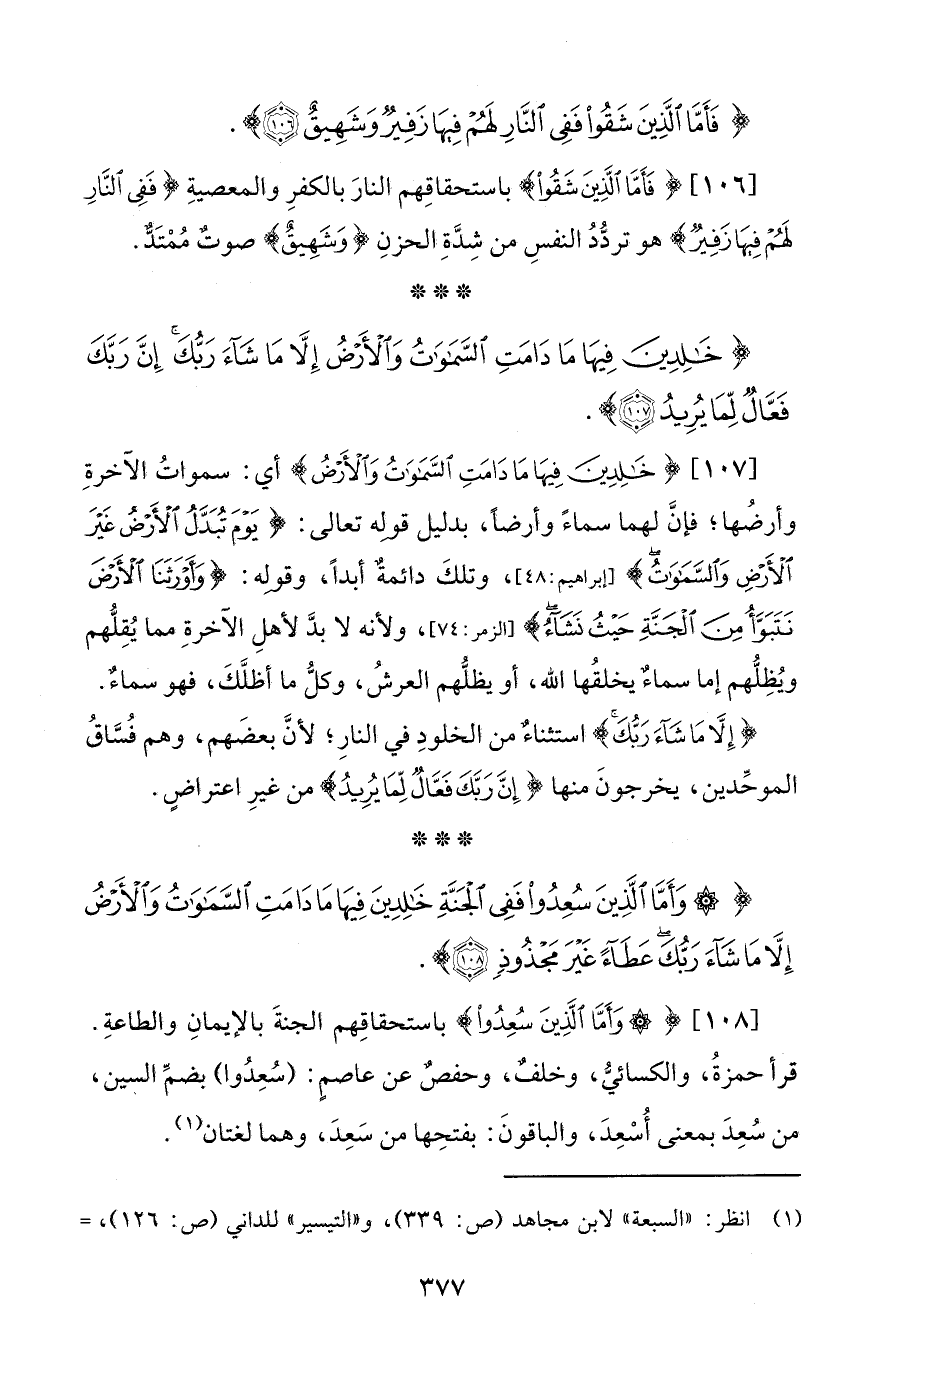 ﴿ فَأَمَّا ٱلَّذِينَ شَقُوا۟ فَفِى ٱلنَّارِ لَهُمْ فِيهَا زَفِيرٌ وَشَهِيقٌ ۝١٠٦ ﴾ .
[١٠٦] ﴿ فَأَمَّا ٱلَّذِينَ شَقُوا۟ ﴾ باستحقاقِهم النارَ بالكفرِ والمعصيةِ ﴿ فَفِى ٱلنَّارِ
لَهُمْ فِيهَا زَفِيرٌ ﴾ هو تردُّدُ النفسِ من شِدَّةِ الحزنِ ﴿ وَشَهِيقٌ ﴾ صوتٌ مُمْتَدٌّ .
* * *
﴿ خَـٰلِدِينَ فِيهَا مَا دَامَتِ ٱلسَّمَـٰوَٰتُ وَٱلْأَرْضُ إِلَّا مَا شَآءَ رَبُّكَ ۚ إِنَّ رَبَّكَ
فَعَّالٌ لِّمَا يُرِيدُ ۝١٠٧ ﴾ .
[١٠٧] ﴿ خَـٰلِدِينَ فِيهَا مَا دَامَتِ ٱلسَّمَـٰوَٰتُ وَٱلْأَرْضُ ﴾ أي : سمواتُ الآخرةِ
وأرضُها؛ فإنَّ لهما سماءً وأرضاً، بدليل قوله تعالى : ﴿ يَوْمَ تُبَدَّلُ ٱلْأَرْضُ غَيْرَ
ٱلْأَرْضِ وَٱلسَّمَـٰوَٰتُ ۖ ﴾ [إبراهيم: ٤٨]، وتلكَ دائمةٌ أبداً، وقوله : ﴿ وَأَوْرَثَنَا ٱلْأَرْضَ
نَتَبَوَّأُ مِنَ ٱلْجَنَّةِ حَيْثُ نَشَآءُ ۖ ﴾ [الزمر: ٧٤]، ولأنه لا بدَّ لأهلِ الآخرةِ مما يُقِلُّهم
ويُظِلُّهم إما سماءٌ يخلقُها الله، أو يظلُّهم العرشُ، وكلُّ ما أظلَّكَ، فهو سماءٌ.
﴿ إِلَّا مَا شَآءَ رَبُّكَ ۚ ﴾ استثناءٌ من الخلودِ في النارِ؛ لأنَّ بعضَهم، وهم فُسَّاقُ
الموحِّدين، يخرجونَ منها ﴿ إِنَّ رَبَّكَ فَعَّالٌ لِّمَا يُرِيدُ ﴾ من غيرِ اعتراضٍ .
* * *
﴿ ۞ وَأَمَّا ٱلَّذِينَ سُعِدُوا۟ فَفِى ٱلْجَنَّةِ خَـٰلِدِينَ فِيهَا مَا دَامَتِ ٱلسَّمَـٰوَٰتُ وَٱلْأَرْضُ
إِلَّا مَا شَآءَ رَبُّكَ ۖ عَطَآءً غَيْرَ مَجْذُوذٍ ۝١٠٨ ﴾ .
[١٠٨] ﴿ ۞ وَأَمَّا ٱلَّذِينَ سُعِدُوا۟ ﴾ باستحقاقِهم الجنةَ بالإيمانِ والطاعةِ .
قرأ حمزةُ، والكسائيُّ، وخلفٌ، وحفصٌ عن عاصمٍ : (سُعِدُوا) بضمِّ السين،
من سُعِدَ بمعنى أُسْعِدَ، والباقونَ : بفتحِها من سَعِدَ، وهما لغتان(١).
(١) انظر : «السبعة» لابن مجاهد (ص: ٣٣٩)، و«التيسير» للداني (ص: ١٢٦)، =
٣٧٧